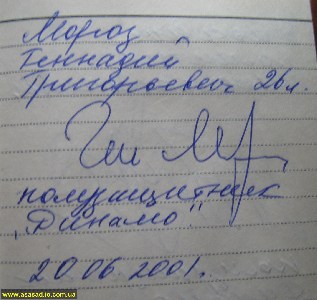 Мороз
Геннадий
Григорьевич 26 л.
полузащитник
"Динамо".
20.06.2001.
www.asasadio.com.ua